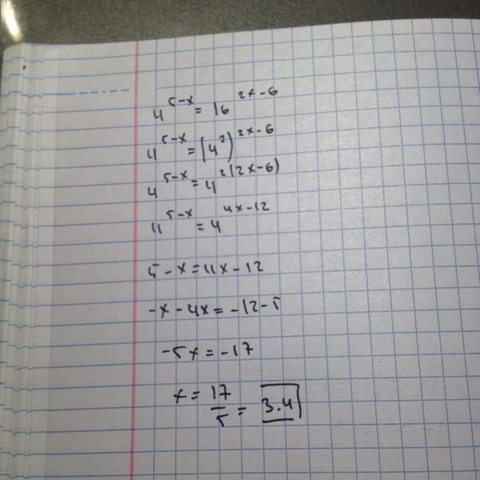 4^5-x = 16^2x-6
4^5-x = (4^2)^2x-6
4^5-x = 4^2(2x-6)
4^5-x = 4^4x-12
5-x = 4x-12
-x-4x = -12-5
-5x = -17
x = 17/5 = 3.4